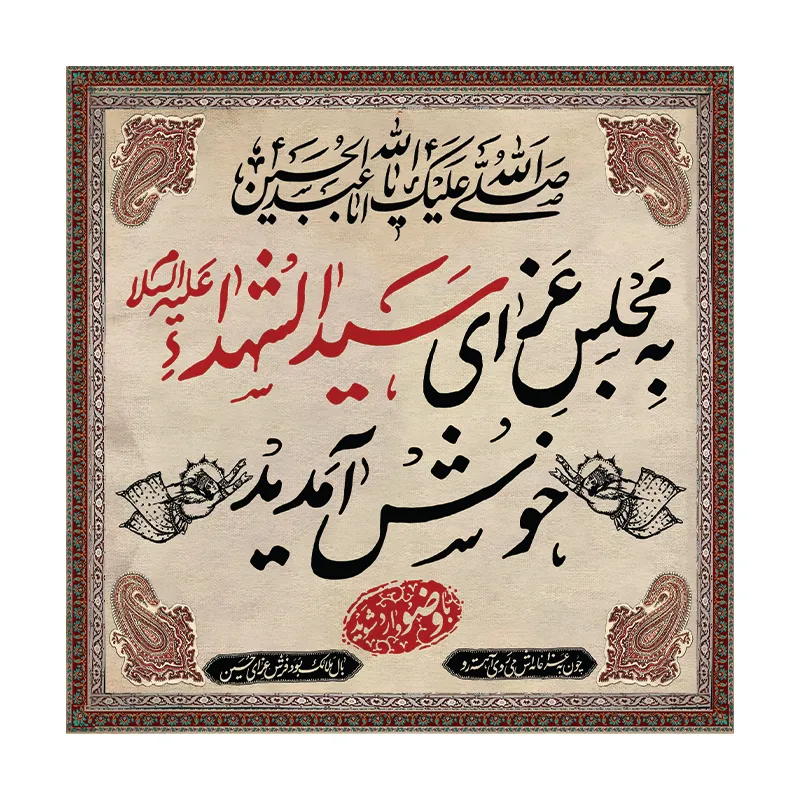 صَلَّی اللهُ عَلَیْکَ یا اَبا عَبدِ اللهِ الحُسَین
به مجلس عزای سید الشهداء علیه السلام
خوش آمدید
با وضو وارد شوید
چون به عزاخانه‌اش می‌روی آهسته رو
بال ملائک بود فرش عزای حسین